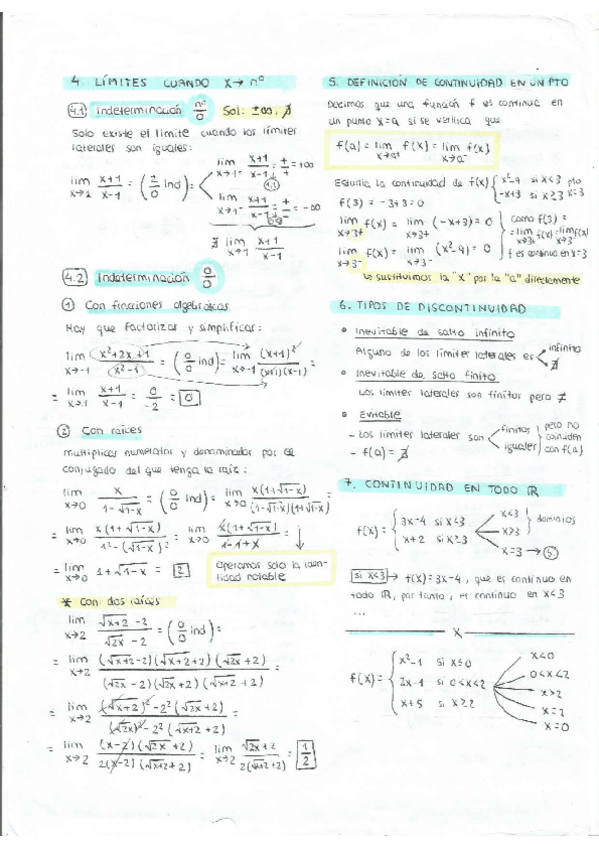 4. LÍMITES CUANDO X→ nº
4.1 Indeterminación nº/0 Sol: ±∞, ∄
Solo existe el límite cuando los límites
laterales son iguales:
lim x→1 (x+1)/(x-1) = (2/0 ind) =
lim x→1+ (x+1)/(x-1) = +/+ = +∞
lim x→1- (x+1)/(x-1) = +/- = -∞
∄ lim (x+1)/(x-1)
4.2 Indeterminación 0/0
① Con fracciones algebráicas
Hay que factorizar y simplificar:
lim x→-1 (x²+2x+1)/(x²-1) = (0/0 ind) = lim x→-1 (x+1)²/((x+1)(x-1)) =
= lim x→1 (x+1)/(x-1) = 0/-2 = 0
② Con raíces
multiplicar numerator y denominador por el
conjugado del que tenga la raíz:
lim x→0 x/(1-√1-x) = (0/0 ind) = lim x→0 x(1+√1-x)/((1-√1-x)(1+√1-x)) =
= lim x→0 x(1+√1-x)/(1²-(√1-x)²) = lim x→0 x(1+√1-x)/(1-1+x) =
= lim x→0 1+√1-x = 2
Operamos solo la iden-
tidad notable
* Con dos raíces
lim x→2 (√x+2 -2)/(√2x -2) = (0/0 ind) =
= lim x→2 (√x+2-2)(√x+2+2)(√2x+2)/((√2x-2)(√2x+2)(√x+2+2)) =
= lim x→2 ((√x+2)²-2²(√2x+2))/((√2x)²-2²(√x+2+2)) =
= lim x→2 (x-2)(√2x+2)/(2(x-2)(√x+2+2)) = lim x→2 (√2x+2)/(2(√x+2+2)) = 1/2
5. DEFINICIÓN DE CONTINUIDAD EN UN PTO
Decimos que una función f es continua en
un punto x=a si se verifica que
f(a) = lim x→a+ f(x) = lim x→a- f(x)
Estudia la continuidad de f(x) { x²-9 si x<3 pto
-x+3 si x≥3 x=3
f(3) = -3+3 = 0
lim x→3+ f(x) = lim x→3+ (-x+3) = 0
lim x→3- f(x) = lim x→3- (x²-9) = 0
como f(3) =
= lim x→3+ f(x) = lim x→3- f(x)
f es continua en x=3
Lo sustituimos la "x" por la "a" directamente
6. TIPOS DE DISCONTINUIDAD
• Inevitable de salto infinito
Alguno de los límites laterales es infinito
∄
• Inevitable de salto finito
Los límites laterales son finitos pero ≠
• Evitable
- Los límites laterales son finitos iguales } pero no coinciden con f(a)
- f(a) = ∄
7. CONTINUIDAD EN TODO ℝ
f(x) = { 3x-4 si x<3
x+2 si x≥3
x<3
x>3
} dominios
x=3 → ⑤
si x<3 → f(x) = 3x-4, que es continuo en
todo ℝ, por tanto, es continuo en x<3
...
X
f(x) = { x²-1 si x≤0
2x-1 si 0<x<2
x+5 si x≥2
x<0
0<x<2
x>2
x=2
x=0